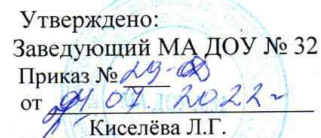 Утверждено:
Заведующий МА ДОУ № 32
Приказ № 29-ОД
от 07. 2022 г
Киселёва Л.Г.